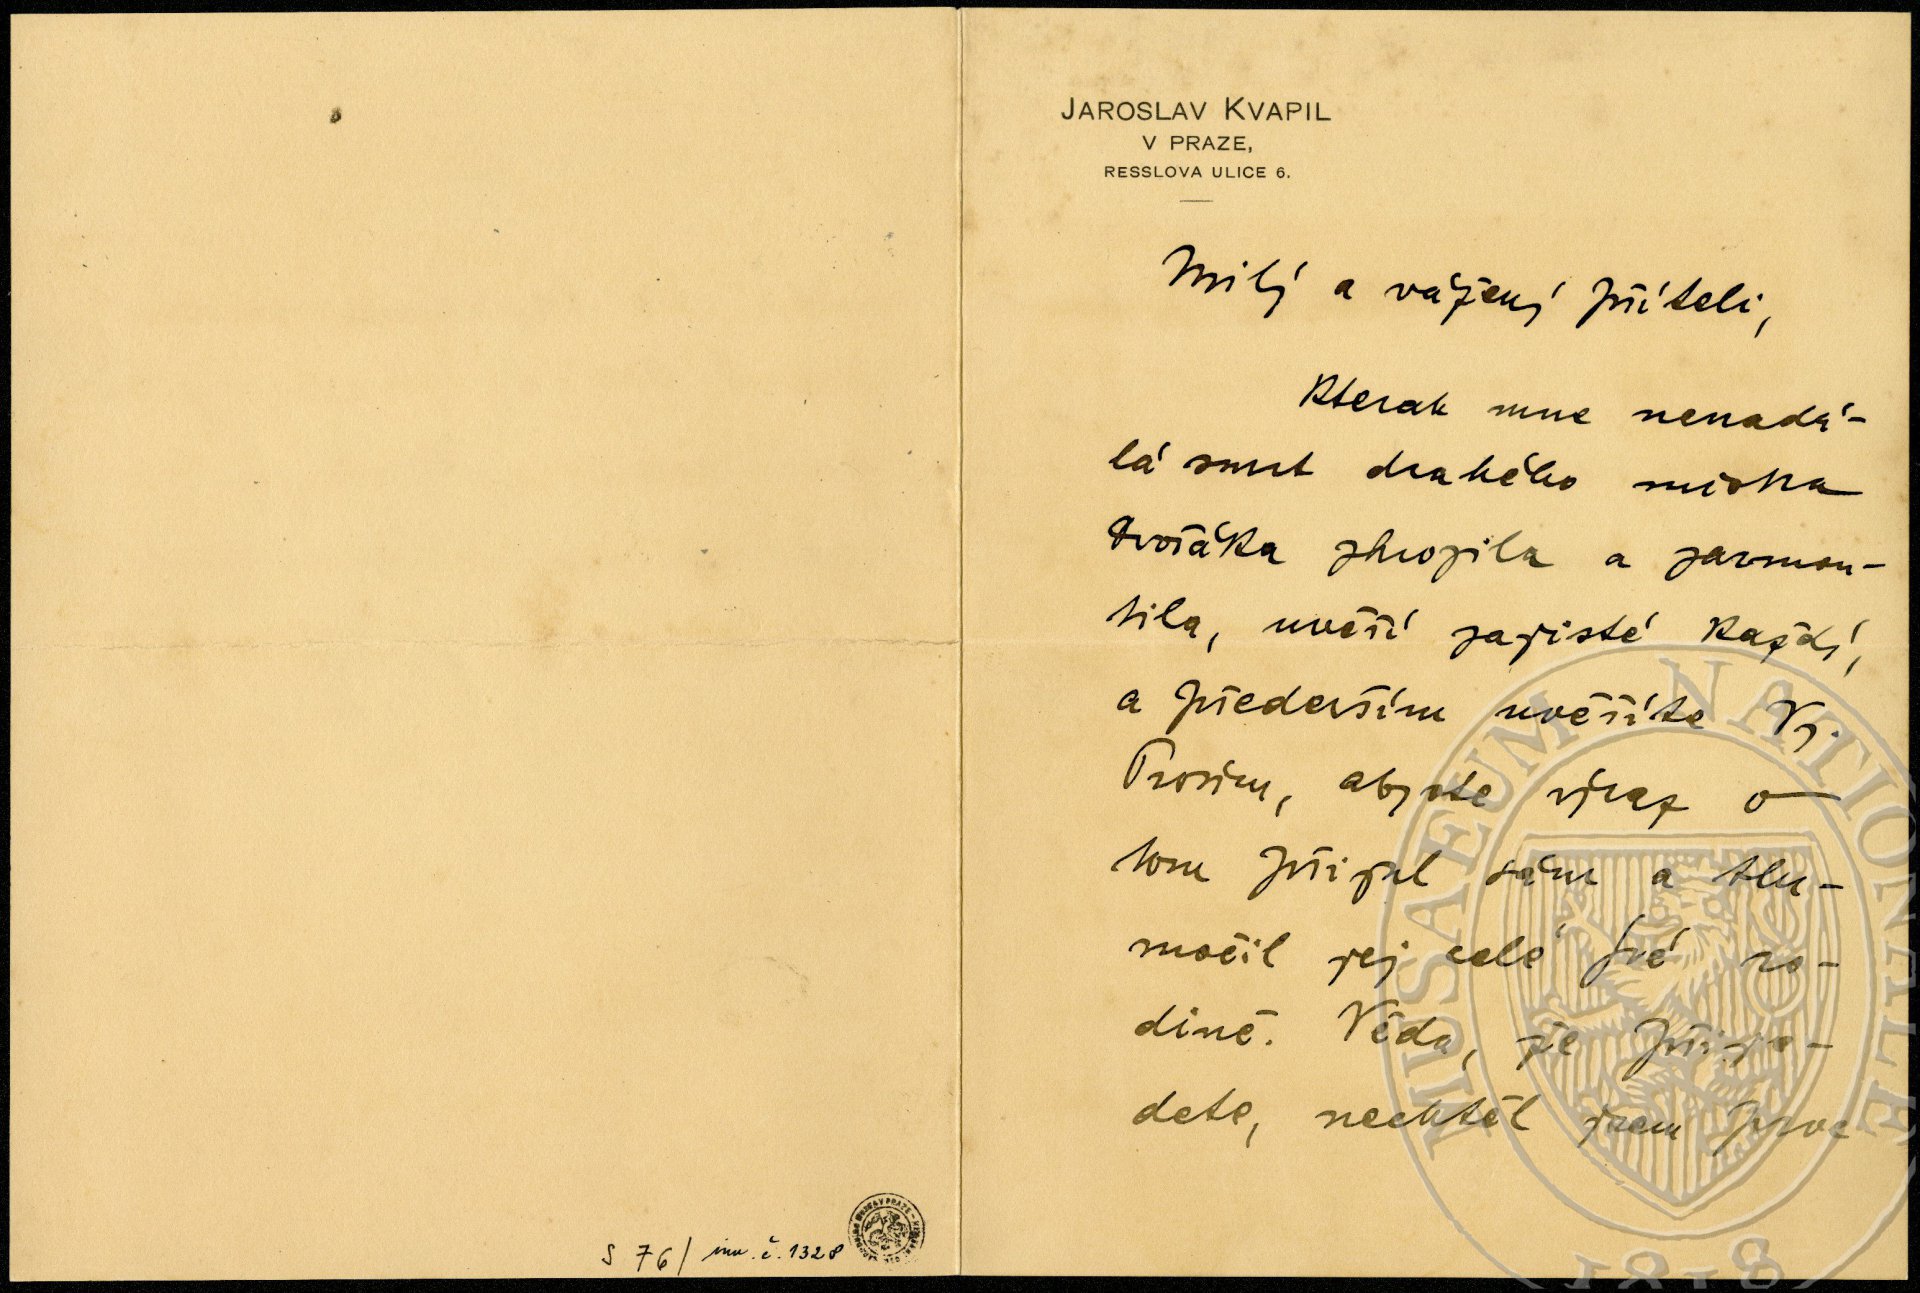 JAROSLAV KVAPIL
V PRAZE,
RESSLOVA ULICE 6.
Milý a vážený příteli,
kterak mne nenadá-
lá smrt drahého mistra
Dvořáka zhrozila a zarmou-
tila, uvěří zajisté každý,
a především uvěříte Vy.
Prosím, abyste výraz o
tom přijal sám a tlu-
močil jej celé své ro-
dině. Věda, že přije-
dete, nechtěl jsem prve
S 76/ inv. č. 1328
MUSAEUM NATIONALE
1818